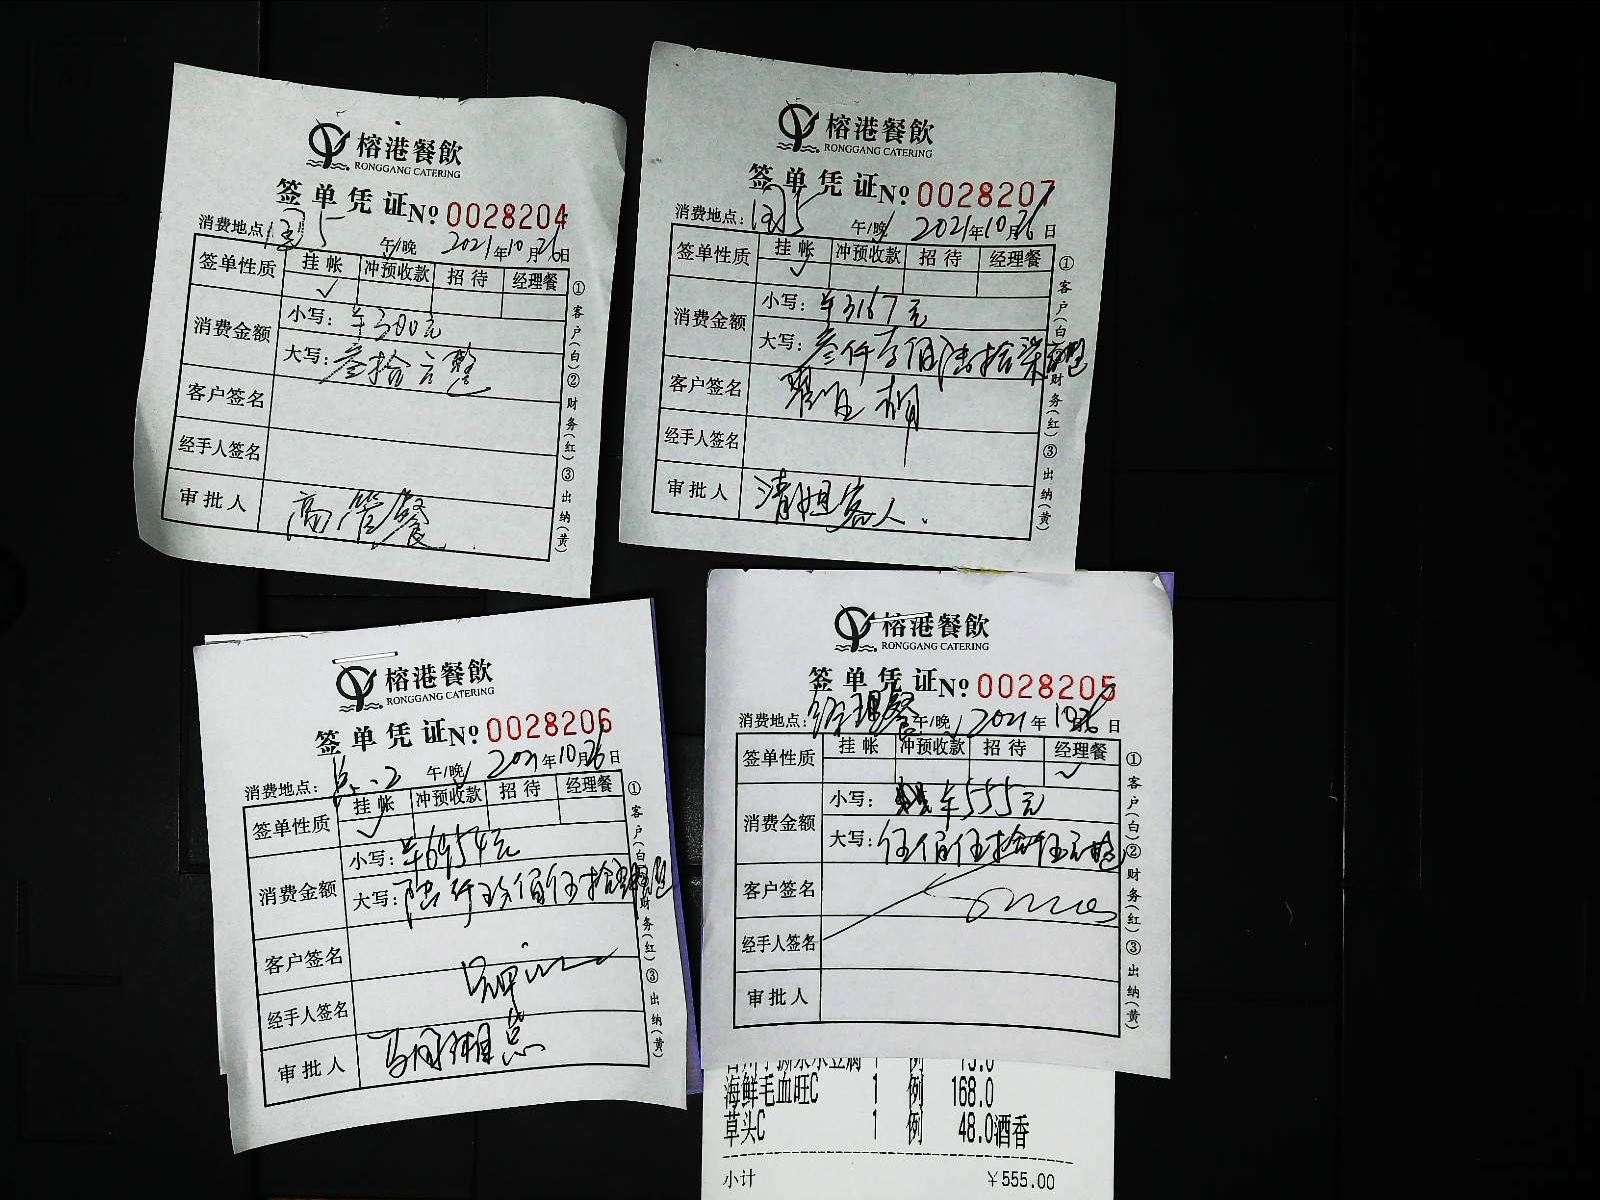 榕港餐飲
RONGGANG CATERING
签单凭证 № 0028204
消费地点: 5 午/晚 2021年10月26日
签单性质 挂帐 冲预收款 招待 经理餐
✓
消费金额 小写: ¥300元
大写: 叁拾元整
客户签名
经手人签名
审批人 高管餐
①客户(白)②财务(红)③出纳(黄)
榕港餐飲
RONGGANG CATERING
签单凭证 № 0028207
消费地点: 5 午/晚 2021年10月26日
签单性质 挂帐 冲预收款 招待 经理餐
✓
消费金额 小写: ¥3167元
大写: 叁仟壹佰陆拾柒元整
客户签名
经手人签名
审批人 客人.
①客户(白)②财务(红)③出纳(黄)
榕港餐飲
RONGGANG CATERING
签单凭证 № 0028206
消费地点: 2 午/晚 2021年10月26日
签单性质 挂帐 冲预收款 招待 经理餐
✓
消费金额 小写: ¥6954元
大写: 陆仟玖佰伍拾肆元整
客户签名
经手人签名
审批人 总
①客户(白)②财务(红)③出纳(黄)
榕港餐飲
RONGGANG CATERING
签单凭证 № 0028205
消费地点: 经理餐 午/晚 2021年10月26日
签单性质 挂帐 冲预收款 招待 经理餐
✓
消费金额 小写: ¥555元
大写: 伍佰伍拾伍元整
客户签名
经手人签名
审批人
①客户(白)②财务(红)③出纳(黄)
海鲜毛血旺C 1 例 168.0
草头C 1 例 48.0酒香
小计 ¥555.00